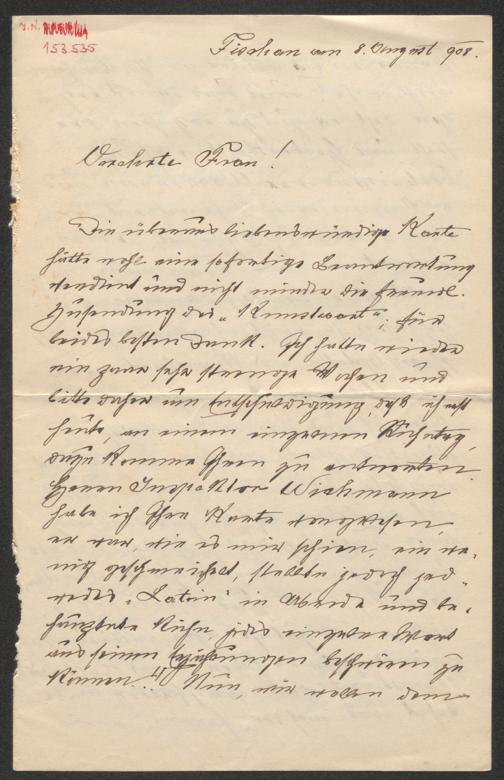 J. N.
153.535
Fischau am 8. August 908.
Verehrte Frau!
Die überaus liebenswürdige Karte
hätte wohl eine sofortige Beantwortung
verdient und nicht minder die freundl.
Zusendung des „Kunstwart“; für
beides besten Dank. Ich hatte wieder
ein paar sehr strenge Wochen und
bitte daher um Entschuldigung, daß ich erst
heute, an einem einzelnen Ruhetag,
dazu komme Ihnen zu antworten.
Herrn Inspektor Wichmann
habe ich Ihre Karte vorgewiesen,
er war, wie es mir schien, ein we-
nig geschmeichelt, stellte jedoch jed-
wedes „Latein“ in Abrede und be-
hauptete kühn, jedes einzelne Wort
aus seinen Erzählungen beschwören zu
können..! Nun, wir wollen dem